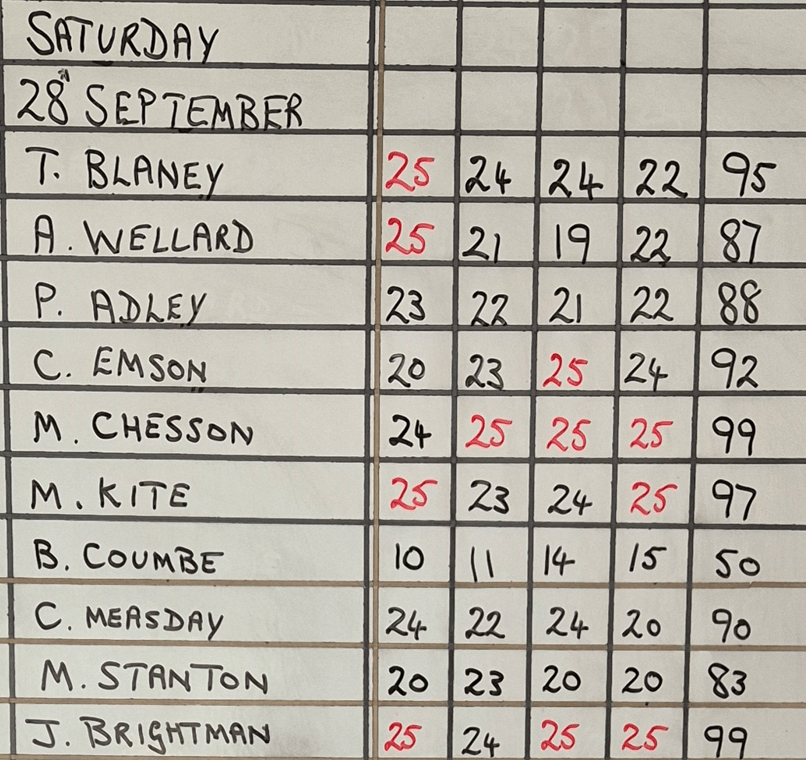 SATURDAY
28th SEPTEMBER
T. BLANEY 25 24 24 22 95
A. WELLARD 25 21 19 22 87
P. ADLEY 23 22 21 22 88
C. EMSON 20 23 25 24 92
M. CHESSON 24 25 25 25 99
M. KITE 25 23 24 25 97
B. COUMBE 10 11 14 15 50
C. MEASDAY 24 22 24 20 90
M. STANTON 20 23 20 20 83
J. BRIGHTMAN 25 24 25 25 99